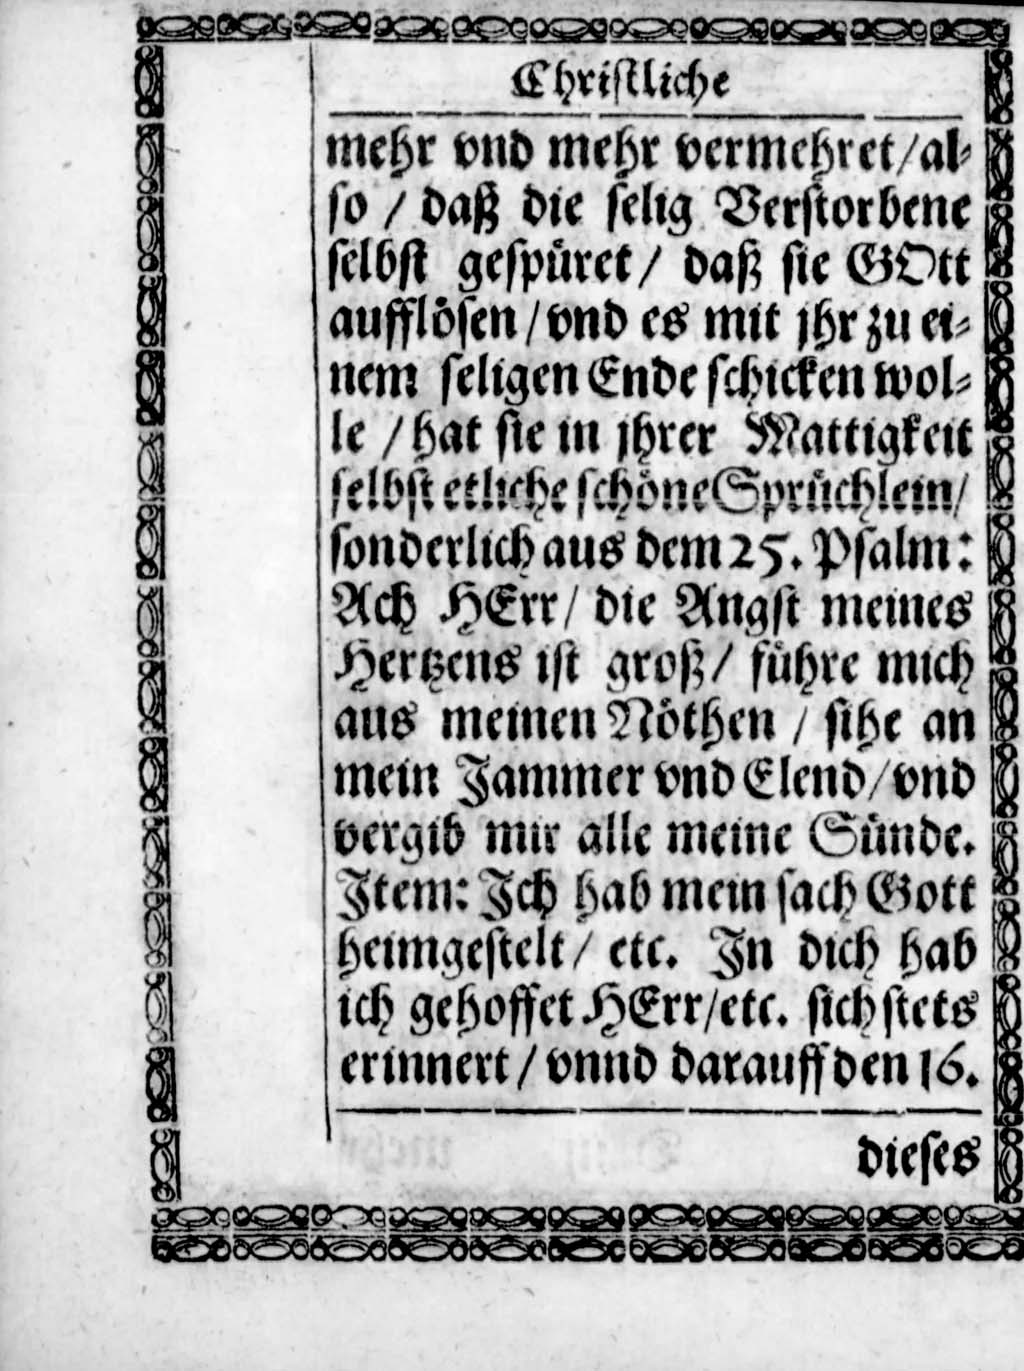 Christliche
mehr vnd mehr vermehret/al-
so / daß die selig Verstorbene
selbst gespüret/ daß sie GOtt
aufflösen/vnd es mit jhr zu ei-
nem seligen Ende schicken wol-
le / hat sie in jhrer Mattigkeit
selbst etliche schöne Sprüchlein/
sonderlich aus dem 25. Psalm:
Ach HErr/ die Angst meines
Hertzens ist groß/ führe mich
aus meinen Nöthen / sihe an
mein Jammer vnd Elend/vnd
vergib mir alle meine Sünde.
Item: Ich hab mein sach Gott
heimgestelt/ etc. In dich hab
ich gehoffet HErr/etc. sich stets
erinnert/ vnnd darauff den 16.
dieses